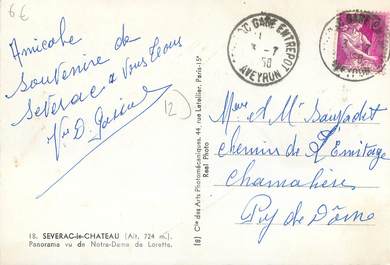 6€
Amicale
Souvenirs de
Séverac à vous tous
Vve D.
12
GARE ENTREPÔT
3-7
38
AVEYRON
Mme et Mr
chemin de l'Ermitage
Chamalières
Puy de Dôme
18. SEVERAC-le-CHATEAU (Alt. 724 m.).
Panorama vu de Notre-Dame de Lorette.
(8) Cie des Arts Photomécaniques, 44, rue Letellier, Paris-15e
Real Photo